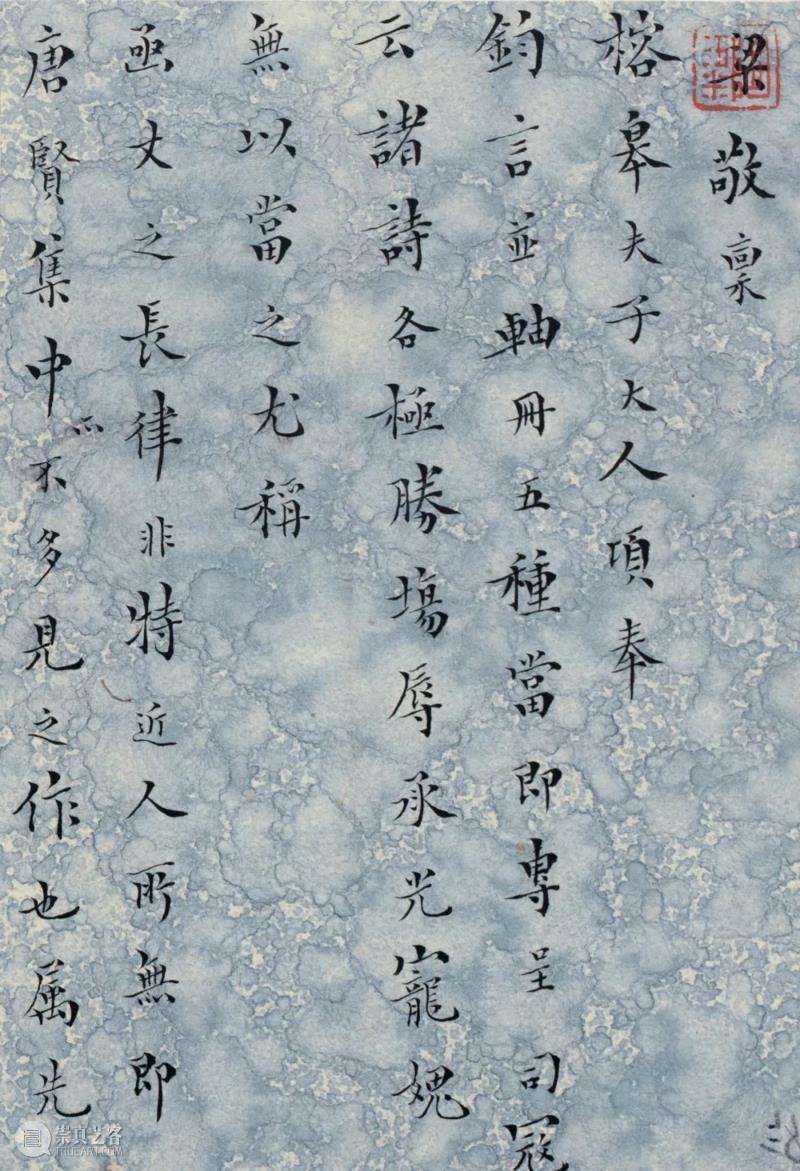 梁敬稟
榕皋夫子大人項奉
鈞言並軸冊五種當即專呈司寇
云諸詩各極勝塲辱承光寵媿
無以當之尤稱
函丈之長律非特近人所無即
唐賢集中亦不多見之作也属先
崇真艺客